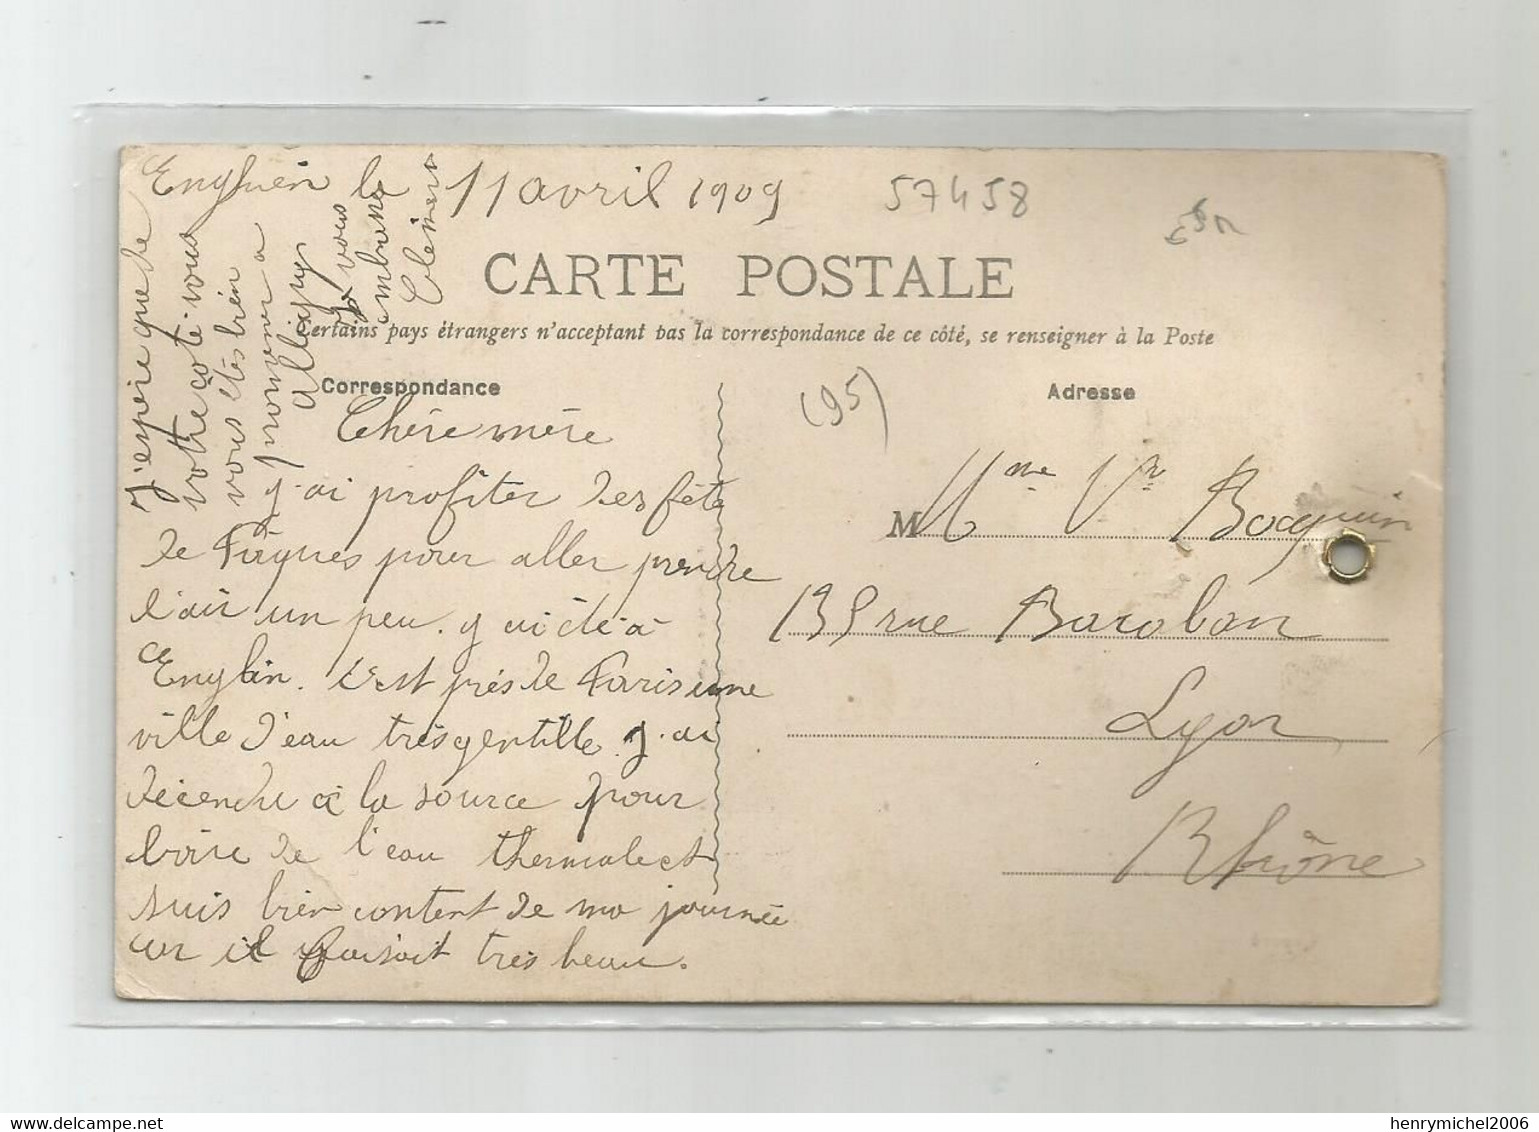 Enghien le 11 avril 1909
57458
CARTE POSTALE
Certains pays étrangers n'acceptent pas la correspondance de ce côté, se renseigner à la Poste
Correspondance
Chère mère
j'ai profiter des fête
de Pâques pour aller prendre
l'air un peu. j ai été à
Englin. C'est près de Paris une
ville d'eau très gentille. j'ai
décendu à la source pour
boire de l'eau thermale et
suis bien content de ma journée
car il faisait très beau.
J'espère que de
votre côté vous
vous êtes bien
promener a
Je vous
embrasse
Clément
Adresse
(95)
M Mme Vve Bocquin
rue Baraban
Lyon
Rhône
henrymichel2006